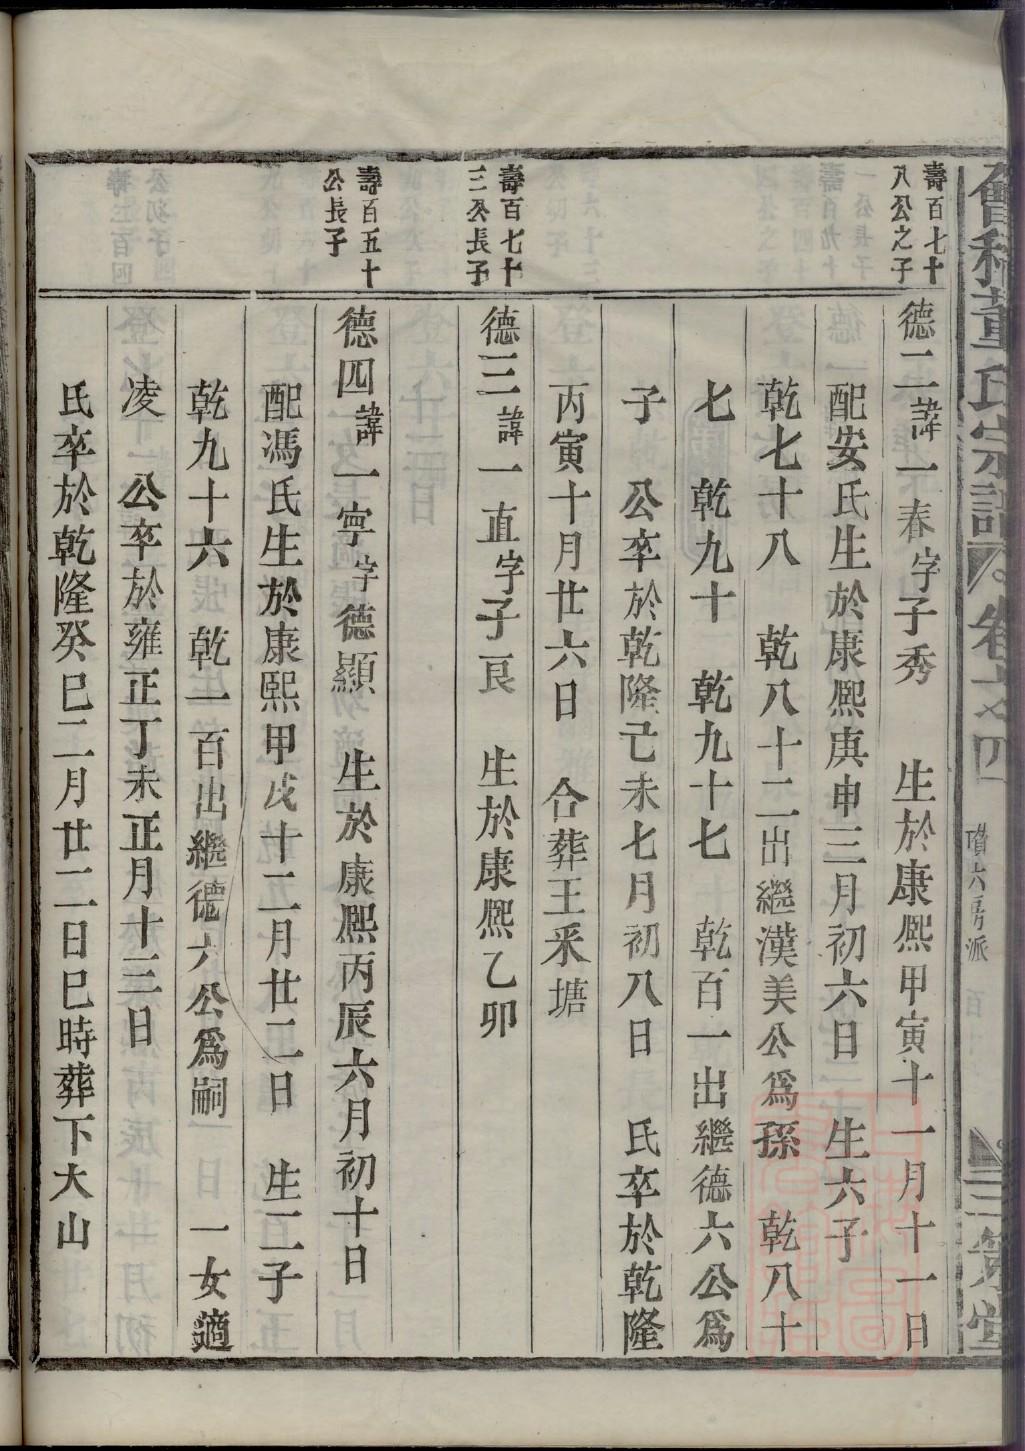 壽百七十
八公之子
德二諱一春字子秀 生於康熙甲寅十一月十一日
配安氏生於康熙庚申三月初六日 生六子
乾七十八 乾八十二出繼漢美公為孫 乾八十
七 乾九十 乾九十七 乾百一出繼德六公爲
子 公卒於乾隆己未七月初八日 氏卒於乾隆
丙寅十月廿六日 合葬王釆塘
壽百七十
三公長子
德三諱一直字子良 生於康熙乙卯
壽百五十
公長子
德四諱一寧字德顯 生於康熙丙辰六月初十日
配馮氏生於康熙甲戌十二月廿二日 生二子
乾九十六 乾一百出繼德六公爲嗣 一女適
凌 公卒於雍正丁未正月十三日
氏卒於乾隆癸巳二月廿二日巳時葬下大山
董氏宗譜 卷之四 六房派 三策堂